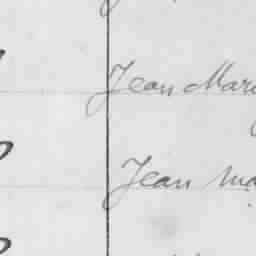 Jean Mari
Jean Ma